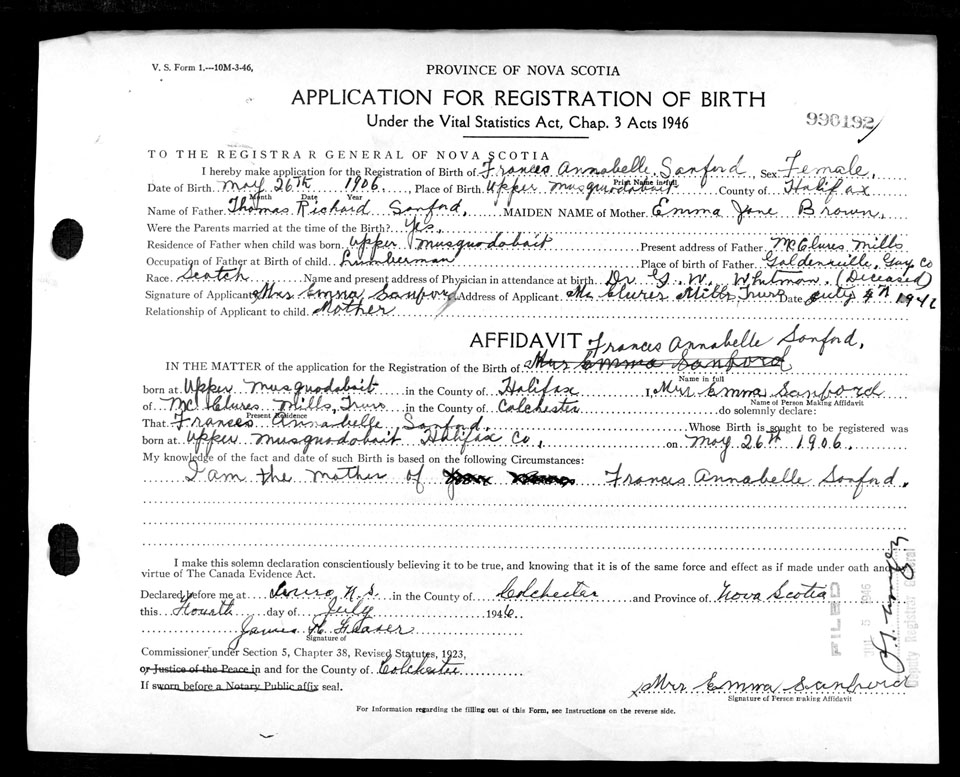 V. S. Form 1.—10M-3-46,
PROVINCE OF NOVA SCOTIA
APPLICATION FOR REGISTRATION OF BIRTH
Under the Vital Statistics Act, Chap. 3 Acts 1946
990192
TO THE REGISTRAR GENERAL OF NOVA SCOTIA
I hereby make application for the Registration of Birth of Frances Annabelle Sanford Sex Female.
Print Name in full
Date of Birth May 26th 1906. Place of Birth Upper Musquodobait County of Halifax
Month Date Year
Name of Father Thomas Richard Sanford, MAIDEN NAME of Mother Emma Jane Brown.
Were the Parents married at the time of the Birth? Yes.
Residence of Father when child was born Upper Musquodobait Present address of Father McClures Mills
Occupation of Father at Birth of child Lumberman Place of birth of Father Goldenville, Guy. Co
Race Scotch Name and present address of Physician in attendance at birth Dr. G. W. Whitman (Deceased)
Signature of Applicant Mrs Emma Sanford Address of Applicant McClures Mills Truro Date July 4th 1946
Relationship of Applicant to child Mother
AFFIDAVIT Frances Annabelle Sanford,
IN THE MATTER of the application for the Registration of the Birth of Mrs Emma Sanford
Name in full
born at Upper Musquodobait in the County of Halifax I, Mrs Emma Sanford
Name of Person Making Affidavit
of McClures Mills, Truro in the County of Colchester do solemnly declare:
Present Residence
That Frances Annabelle Sanford. Whose Birth is sought to be registered was
born at Upper Musquodobait, Halifax Co, on May 26th 1906.
My knowledge of the fact and date of such Birth is based on the following Circumstances:
I am the mother of Frances Annabelle Sanford.
I make this solemn declaration conscientiously believing it to be true, and knowing that it is of the same force and effect as if made under oath and
virtue of The Canada Evidence Act.
Declared before me at Truro N.S in the County of Colchester and Province of Nova Scotia
this Fourth day of July 1946
James H Fraser
Signature of
Commissioner under Section 5, Chapter 38, Revised Statutes, 1923,
or Justice of the Peace in and for the County of Colchester
If sworn before a Notary Public affix seal.
Mrs Emma Sanford
Signature of Person making Affidavit
For Information regarding the filling out of this Form, see Instructions on the reverse side.
FILED
1946
Deputy Registrar General